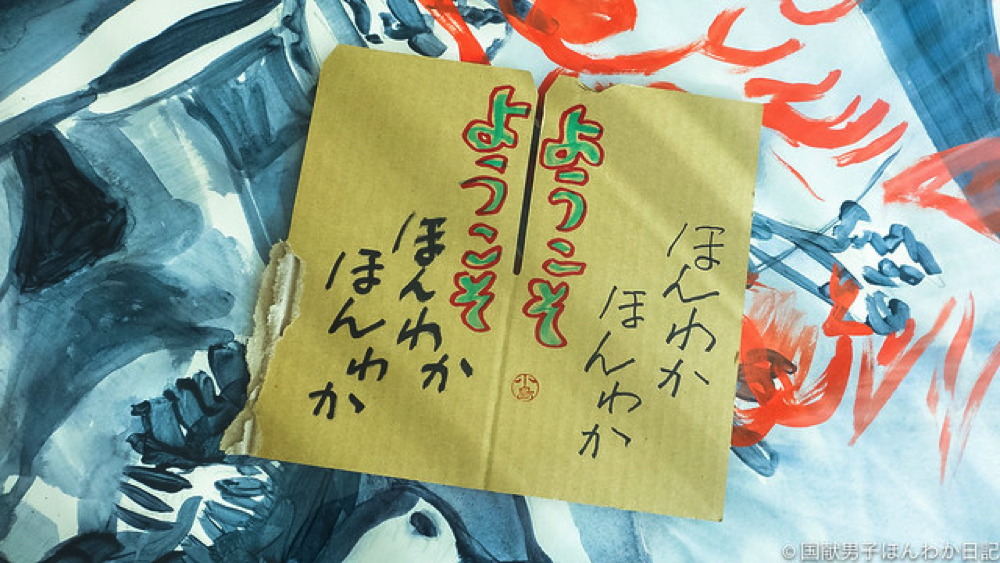 ようこそ
ほんわか
ほんわか
ようこそ
ほんわか
ほんわか
小島
©国献男子ほんわか日記